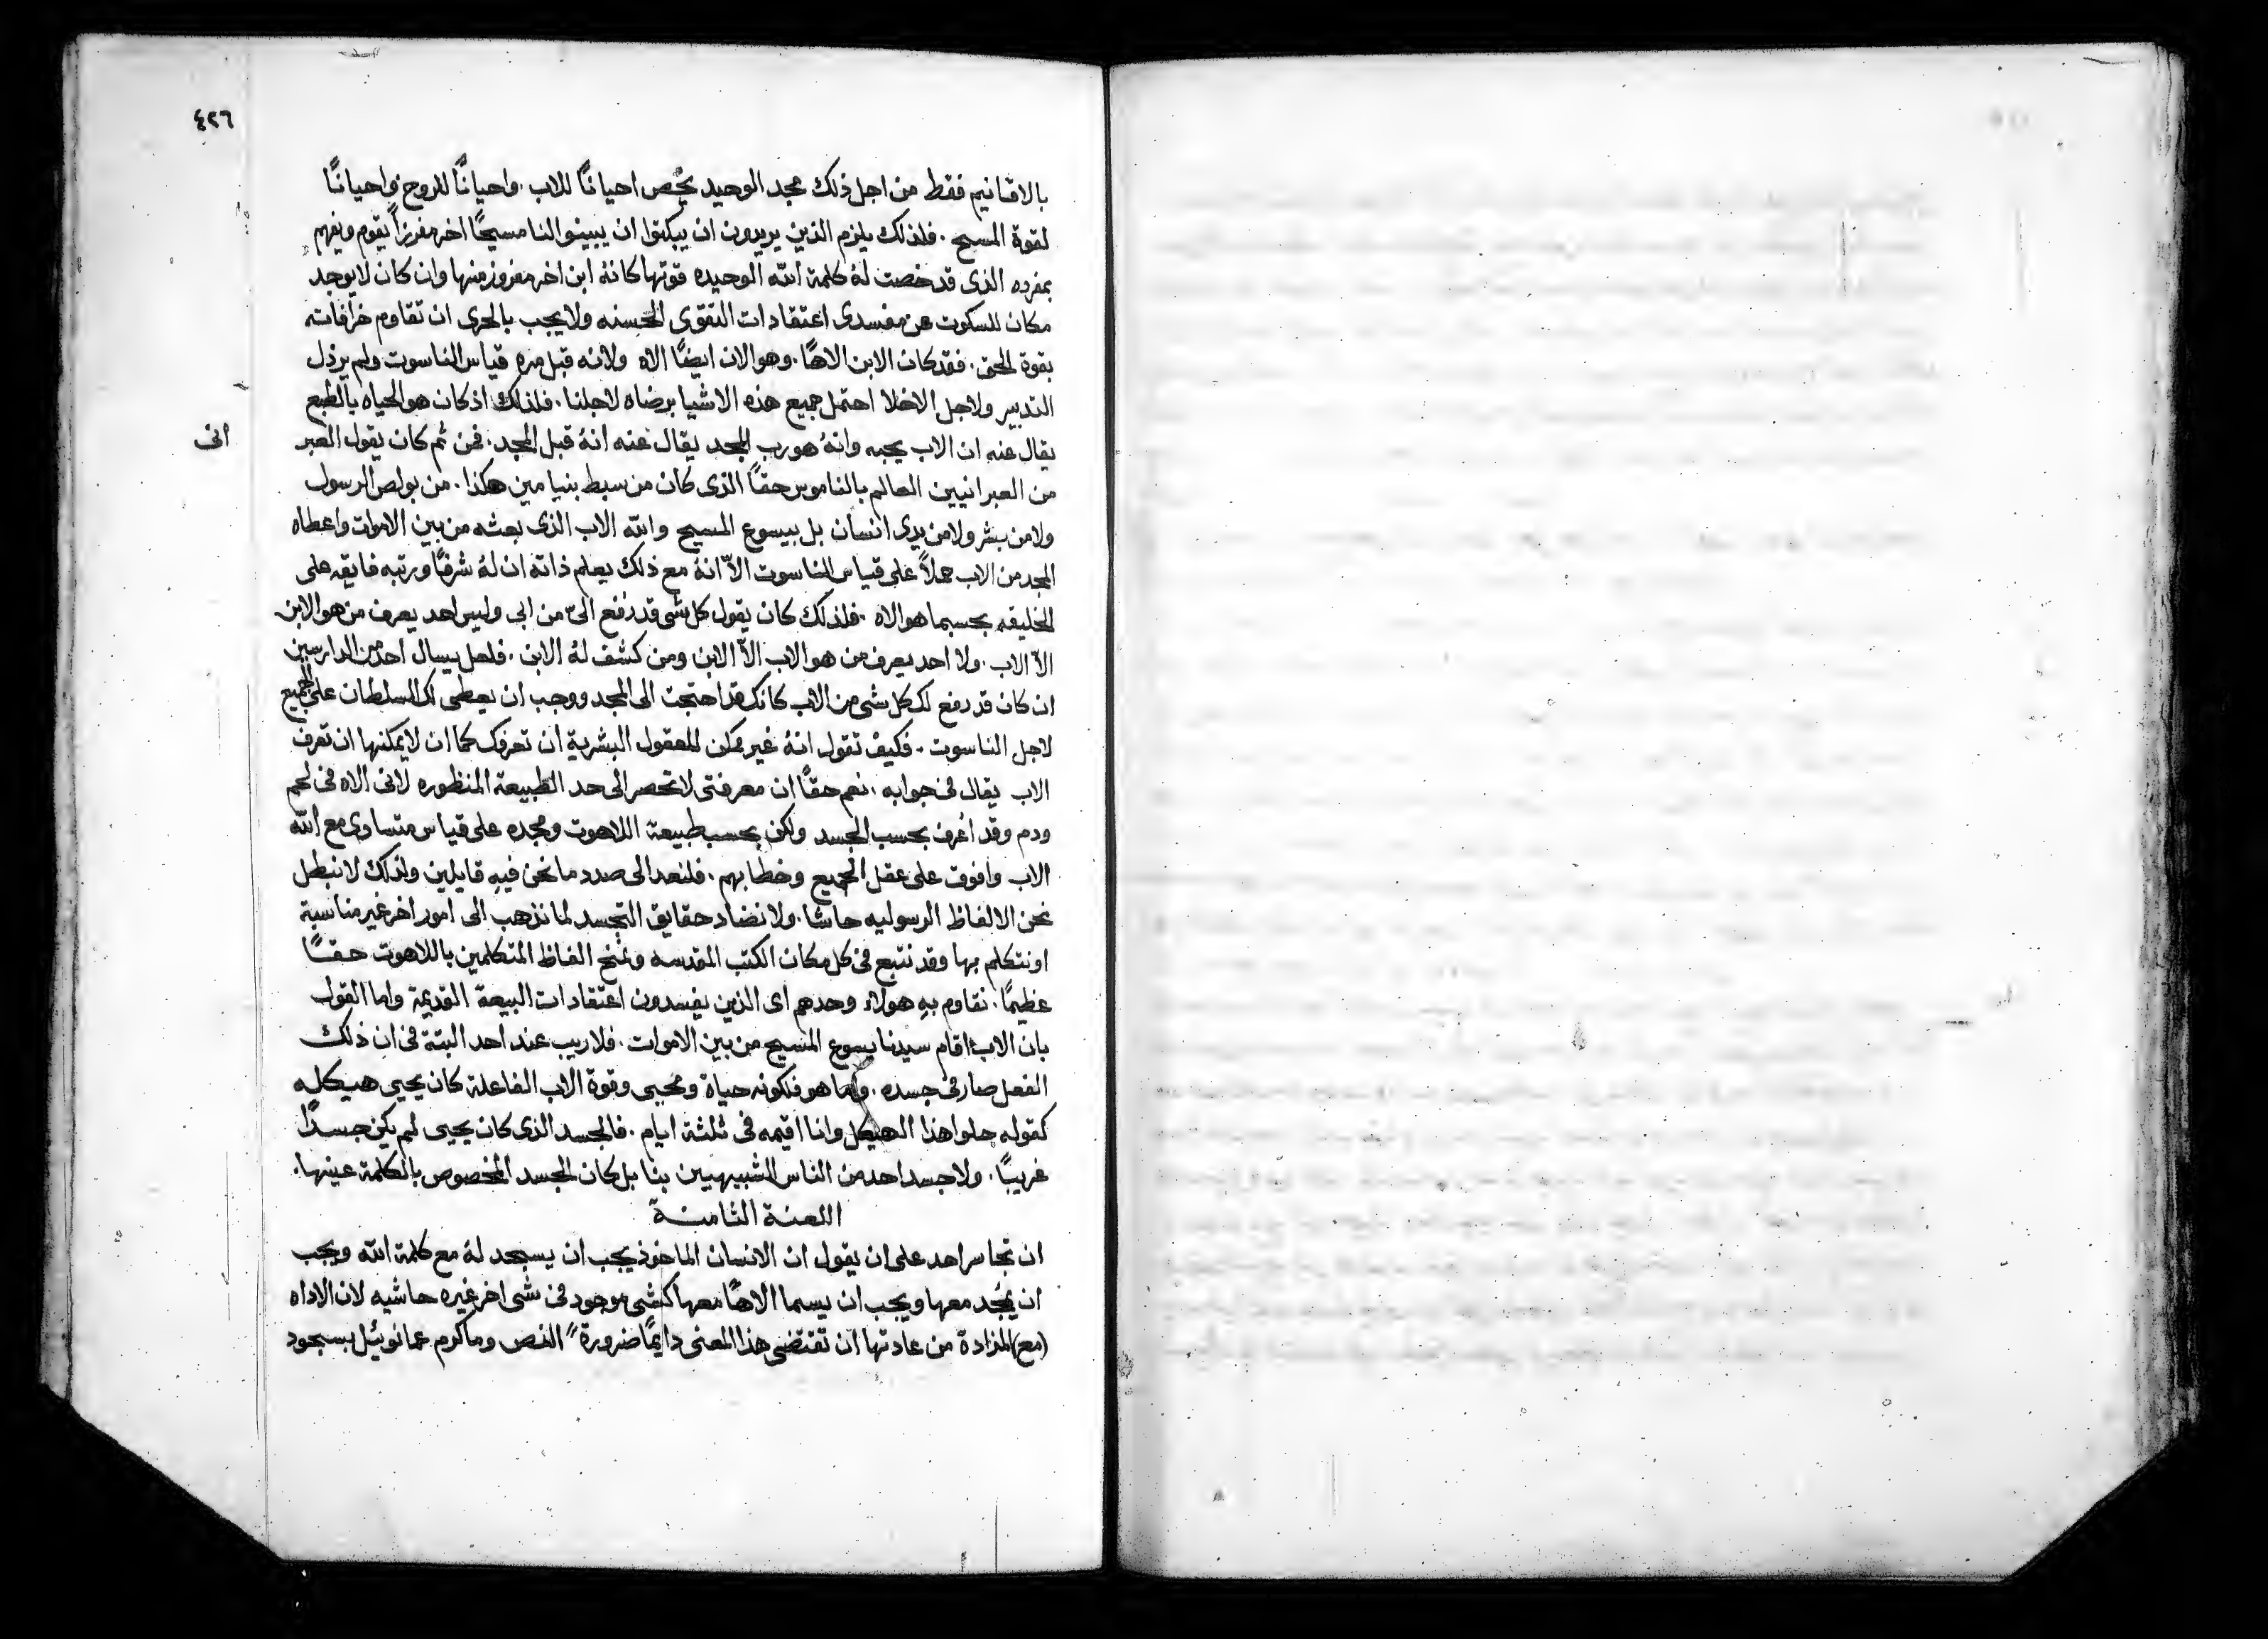 ٤٢٦
بالاقانيم فقط من اجل ذلك مجد الوحيد يخص احيانًا للاب. واحيانًا للروح واحيانًا
لقوة المسيح. فلذلك يلزم الذين يريدون ان يبكتوا ان يبينوا لنا مسيحًا اخر مفرزاً يقوم ويفهم
بمفرده الذى قد خصت لهُ كلمة الله الوحيده قوتها كانهُ ابن اخر مفروز منها وان كان لا يوجد
مكان للسكوت عن مفسدى اعتقادات التقوى الحسنه ولا يجب بالحرى ان تقاوم خرافاته
بقوة الحق. فقد كان الابن الاهًا. وهو الان ايضًا الاه ولانه قبل مره قياس الناسوت ولم يرذل
التدبير ولاجل الاخلا احتمل جميع هذه الاشيا برضاه لاجلنا. فلذلك اذ كان هو الحياه بالطبع
يقال عنه ان الاب يحييه وانهُ هو رب المجد يقال عنه انهُ قبل المجد. فمن ثم كان يقول العبر
انى
من العبرانيين العالم بالناموس حقاً الذى كان من سبط بنيامين هكذا. من بولص الرسول
ولا من بشر ولا من يدى انسان بل بيسوع المسيح والله الاب الذى بعثه من بين الاموات واعطاه
المجد من الاب حملاً على قياس الناسوت الاّ انهُ مع ذلك يعلم ذاته ان لهُ شرفًا ورتبه فايقه على
الخليقه بحسبما هو الاه. فلذلك كان يقول كل شى قد رفع الىّ من ابى وليس احد يعرف من هو الابن
الاّ الاب. ولا احد يعرف من هو الاب الاّ الابن ومن كشف لهُ الابن. فلعل يسال احد من الدارسين
ان كان قد رفع لك كل شى من الاب كانك قد احتجت الى المجد ووجب ان يعطى لك السلطان على الجميع
لاجل الناسوت. فكيف تقول انهُ غير ممكن للعقول البشرية ان تعرفك كما ان لا يمكنها ان تعرف
الاب يقال فى جوابه. نعم حقًا ان معرفتى لا تحصر الى حد الطبيعة المنظوره لانى الاه فى لحم
ودم وقد اُعرف بحسب الجسد ولكن بحسب طبيعة اللاهوت ومجده على قياس متساوى مع الله
الاب وافوق على عقل الجميع وخطابهم. فلنعد الى صدد ما نحن فيهِ قايلين ولذلك لا نبطل
نحن الالفاظ الرسوليه حاشا. ولا نضاد حقايق التجسد لما نذهب الى امور اخر غير مناسبة
او نتكلم بها وقد نتبع فى كل مكان الكتب المقدسه ونمنح الفاظ المتكلمين باللاهوت حقًا
عظيمًا. نقاوم بهِ هولاء وحدهم اى الذين يفسدون اعتقادات البيعة القديمة واما القول
بان الاب اقام سيدنا يسوع المسيح من بين الاموات. فلا ريب عند احد البتة فى ان ذلك
الفعل صار فى جسده. واما هو فلكونه حياة ومحيى وقوة الاب الفاعلة كان يحيى هيكله
كقوله حلوا هذا الهيكل وانا اقيمه فى ثلثة ايام. فالجسد الذى كان يحيى لم يكن جسدًا
غريبًا. ولا جسد احد من الناس الشبيهيين بنا بل كان الجسد المخصوص بالكلمة عينها.
اللعنة الثامنة
ان تجاسر احد على ان يقول ان الانسان الماخوذ يجب ان يسجد لهُ مع كلمة الله ويجب
ان يُمجد معها ويجب ان يسما الاهًا معها كشى موجود فى شى اخر غيره حاشيه لان الاداه
(مع) المزادة من عادتها ان تقتضى هذا المعنى دايمًا ضرورة النص وما كرم عمانوئيل بسجود